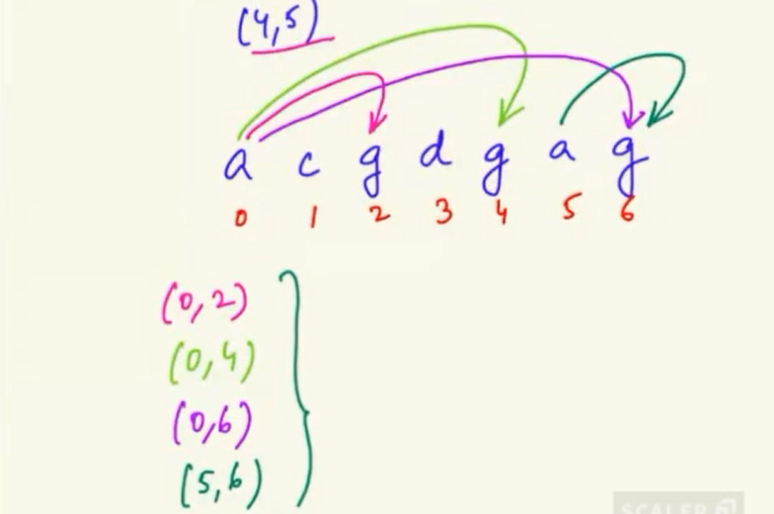 (4,5)
a c g d g a g
0 1 2 3 4 5 6
(0,2)
(0,4)
(0,6)
(5,6)
SCALER